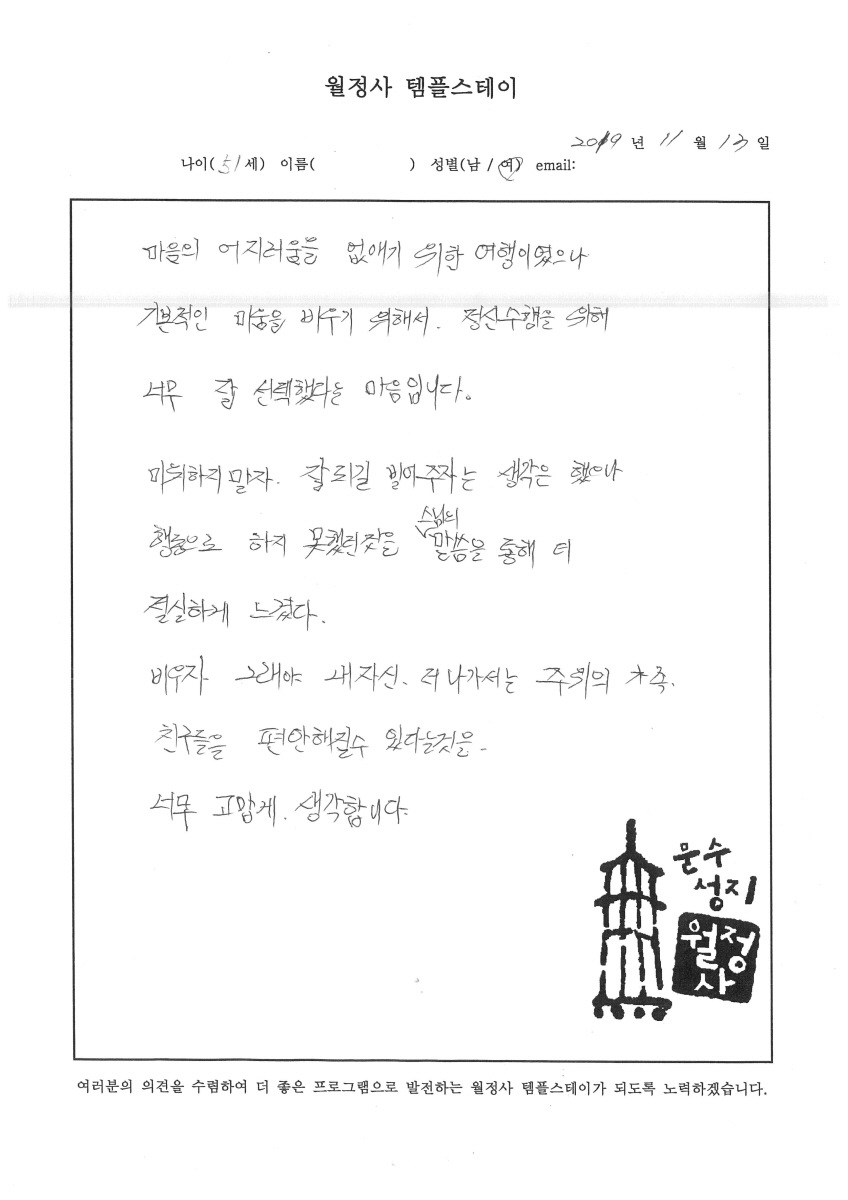 월정사 템플스테이
2019 년 11 월 13 일
나이(51세) 이름( ) 성별(남 / 여) email:
마음의 어지러움을 없애기 위한 여행이였으나
기본적인 마음을 비우기 위해서. 정신수행을 위해
너무 잘 선택했다는 마음입니다.
미워하지말자. 잘되길 빌어주자는 생각은 했으나
행동으로 하지 못했던것을 스님의 말씀을 통해 더
절실하게 느꼈다.
비우자 그래야 내자신. 더 나가서는 주위의 가족.
친구들을 편안해질수 있다는것을.
너무 고맙게. 생각합니다.
문수
성지
월정
사
여러분의 의견을 수렴하여 더 좋은 프로그램으로 발전하는 월정사 템플스테이가 되도록 노력하겠습니다.